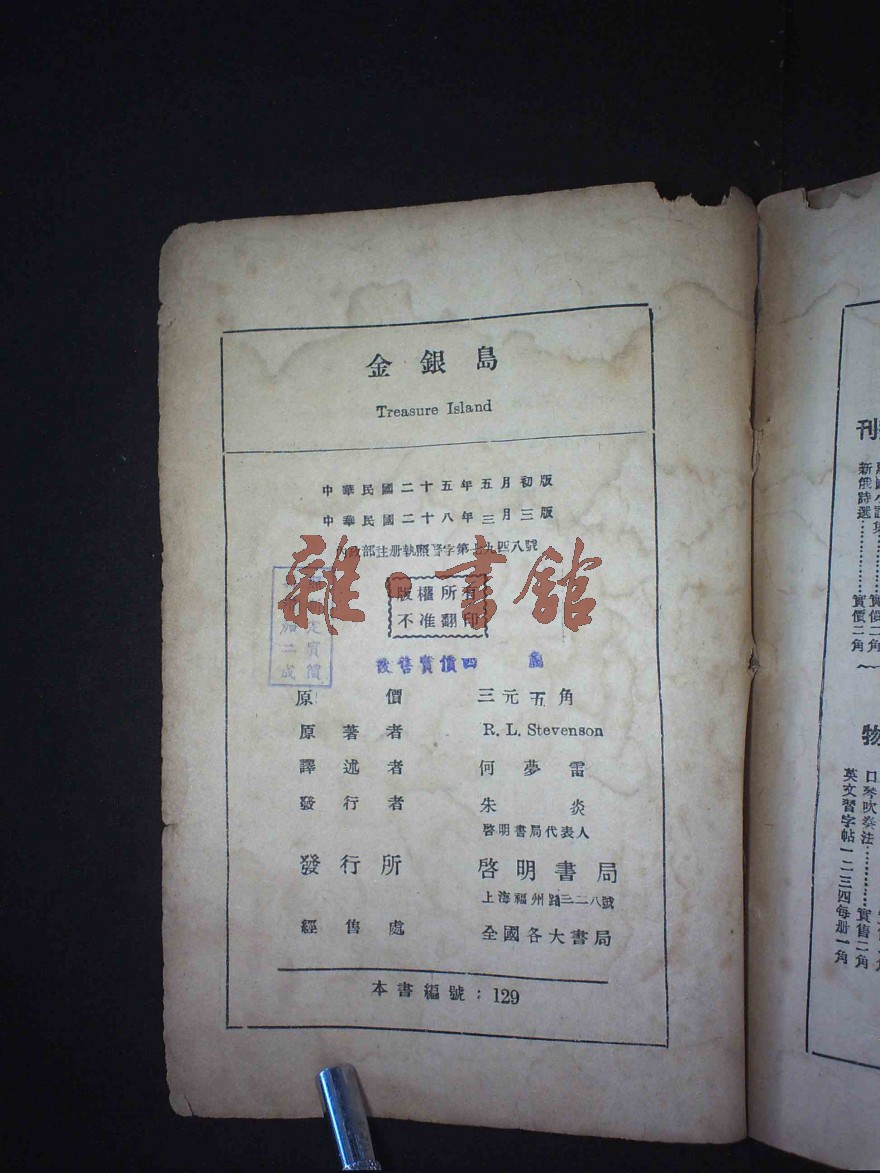 金銀島
Treasure Island
中華民國二十五年五月初版
中華民國二十八年三月三版
內政部註册執照警字第七九四八號
雜·書館
版權所有
不准翻印
定實價
加二成
改售實價四
原價 三元五角
原著者 R. L. Stevenson
譯述者 何夢雷
發行者 朱炎
啓明書局代表人
發行所 啓明書局
上海福州路三二八號
經售處 全國各大書局
本書編號：129
刊
新俄詩選 實價二角
物
口琴吹奏法 實售二角
英文習字帖一二三四每册一角